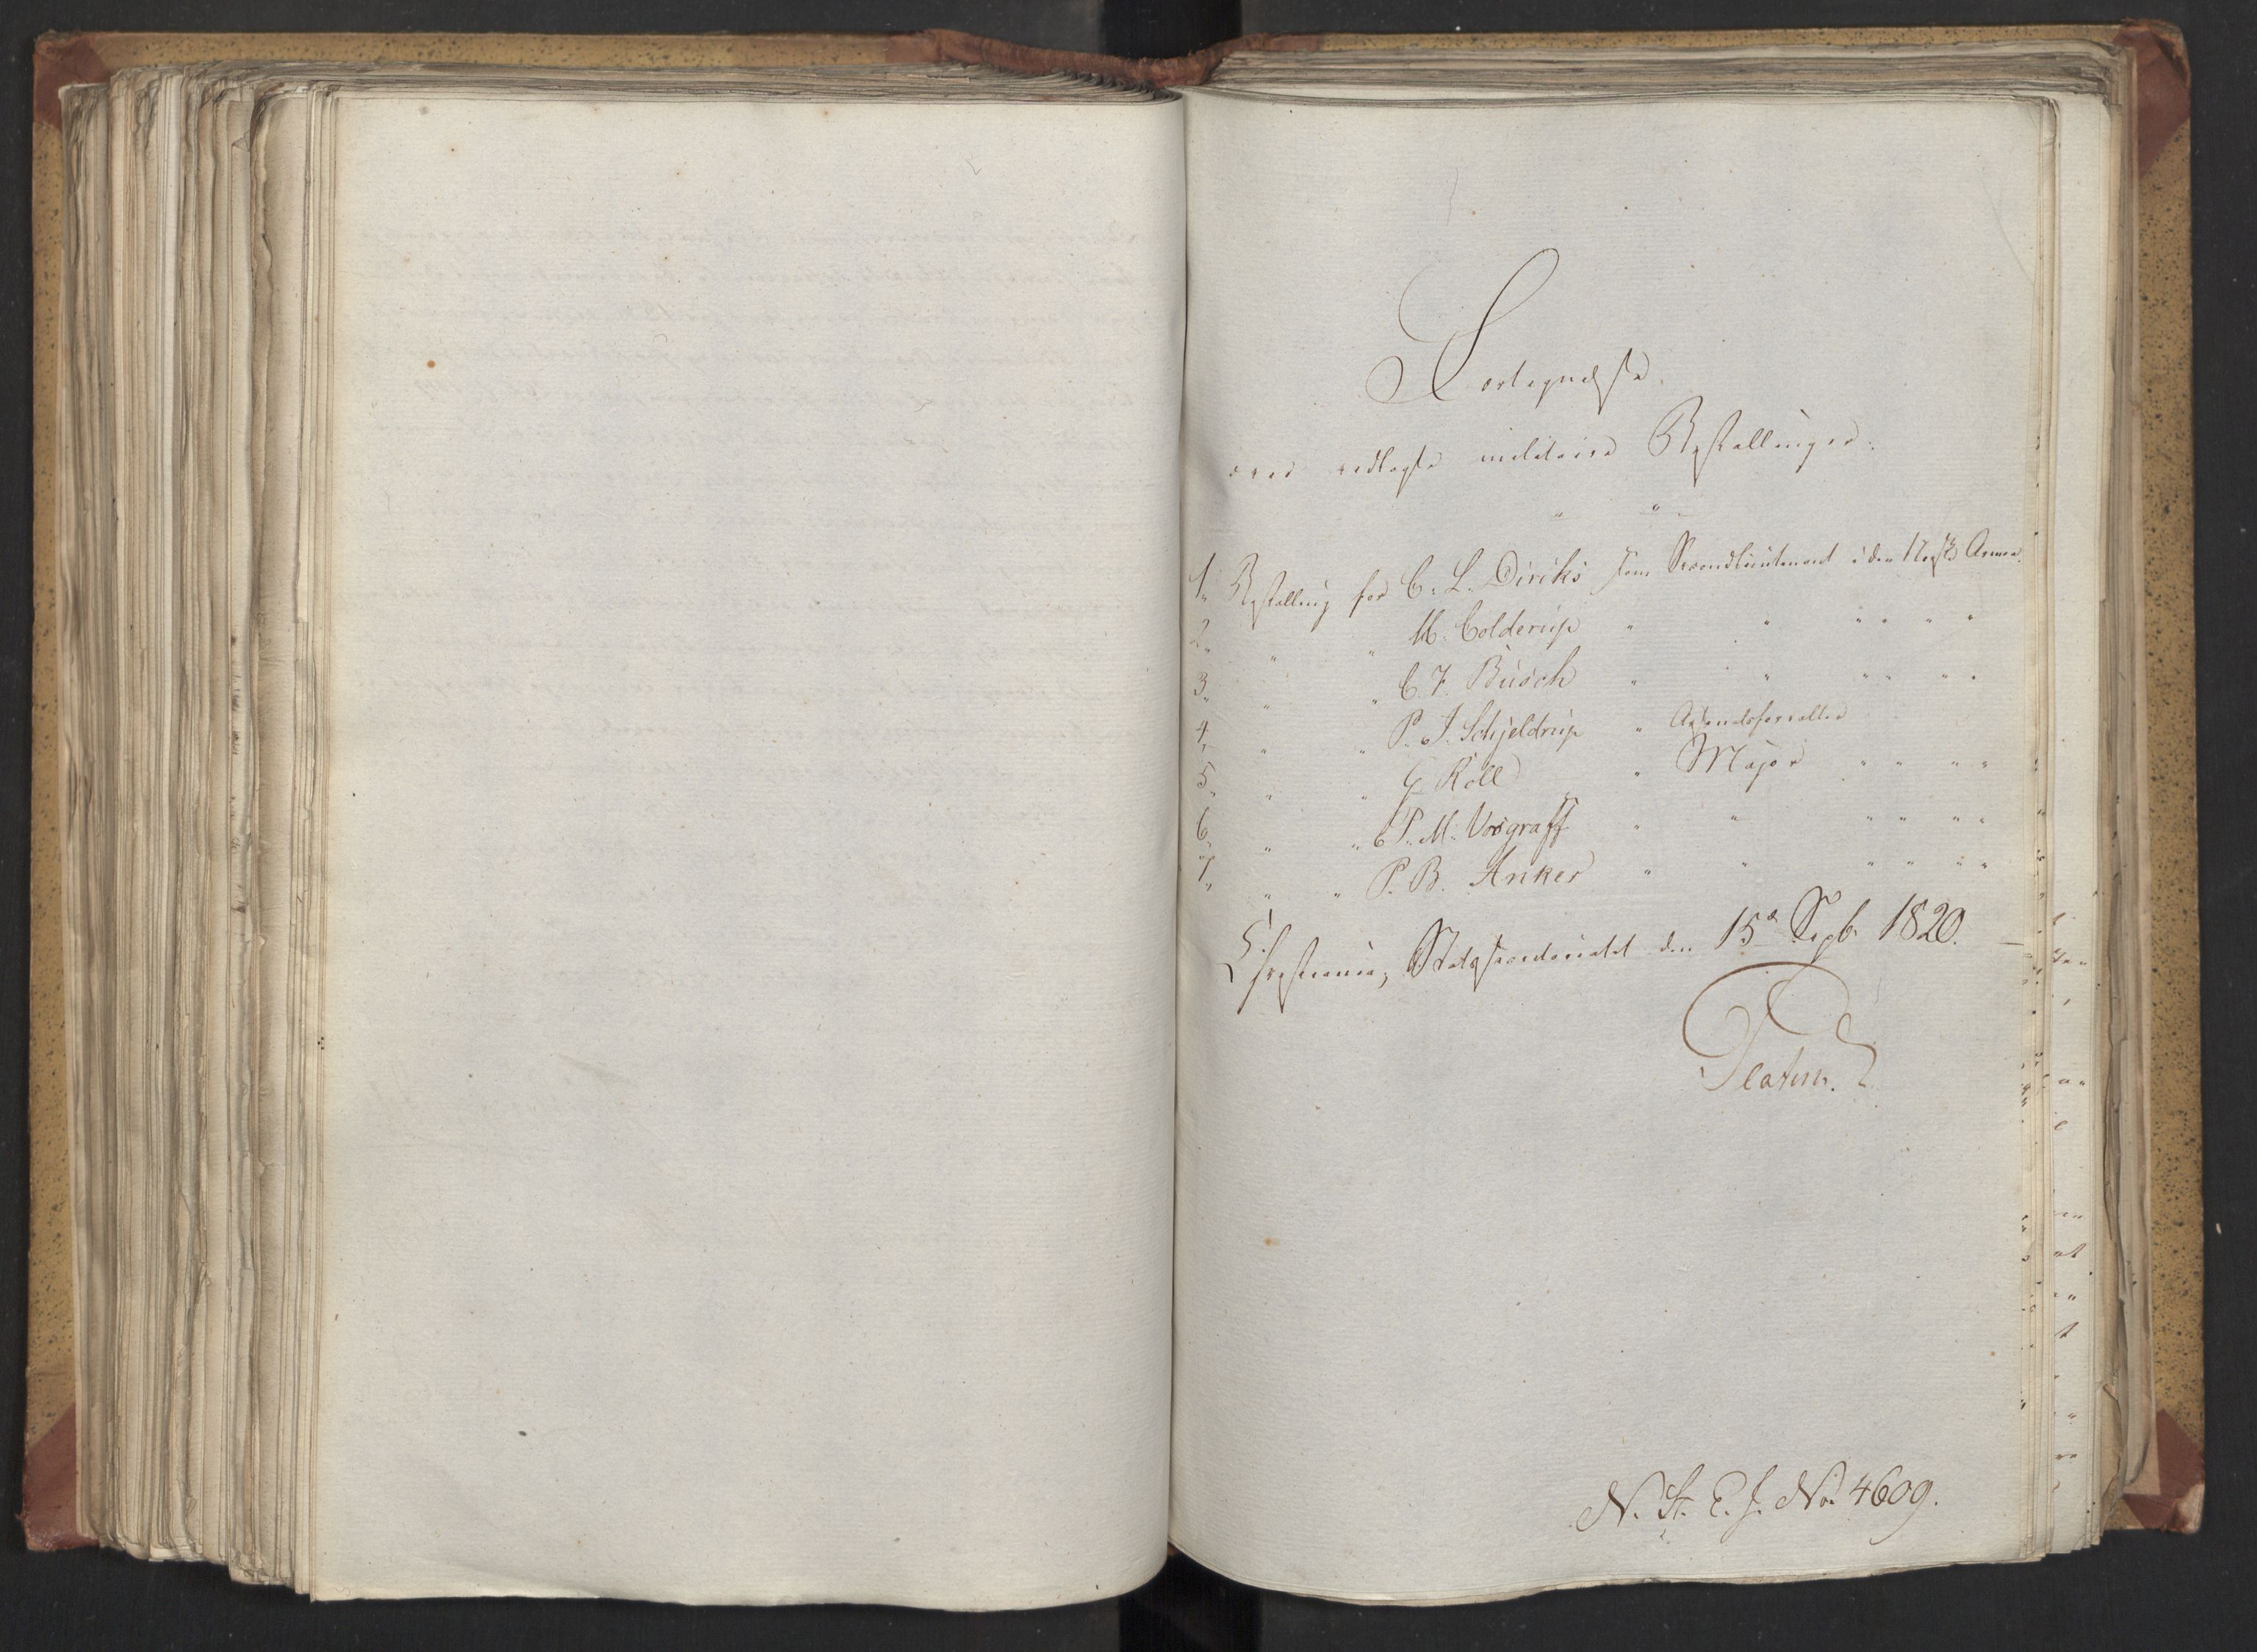 Fortegnelse
over vedlagte militaire Bestallinger.
" "
1. Bestalling for C. L. Diriks som Secondlieutenant i den Norske Armee.
2. " " M. Colderup " " " " " "
3. " " C. F. Busch " " " " " "
4. " " P. J. Schjeldrup " Agentsforvalter
5. " " G Roll " Major " " " "
6. " " C P. M. Vosgraff " " " " " "
7. " " P. B. Anker " " " " " "
Christiania, Statssecretariatet den 15de Septb. 1820.
Platou.
N. St. E. J. No. 4609.